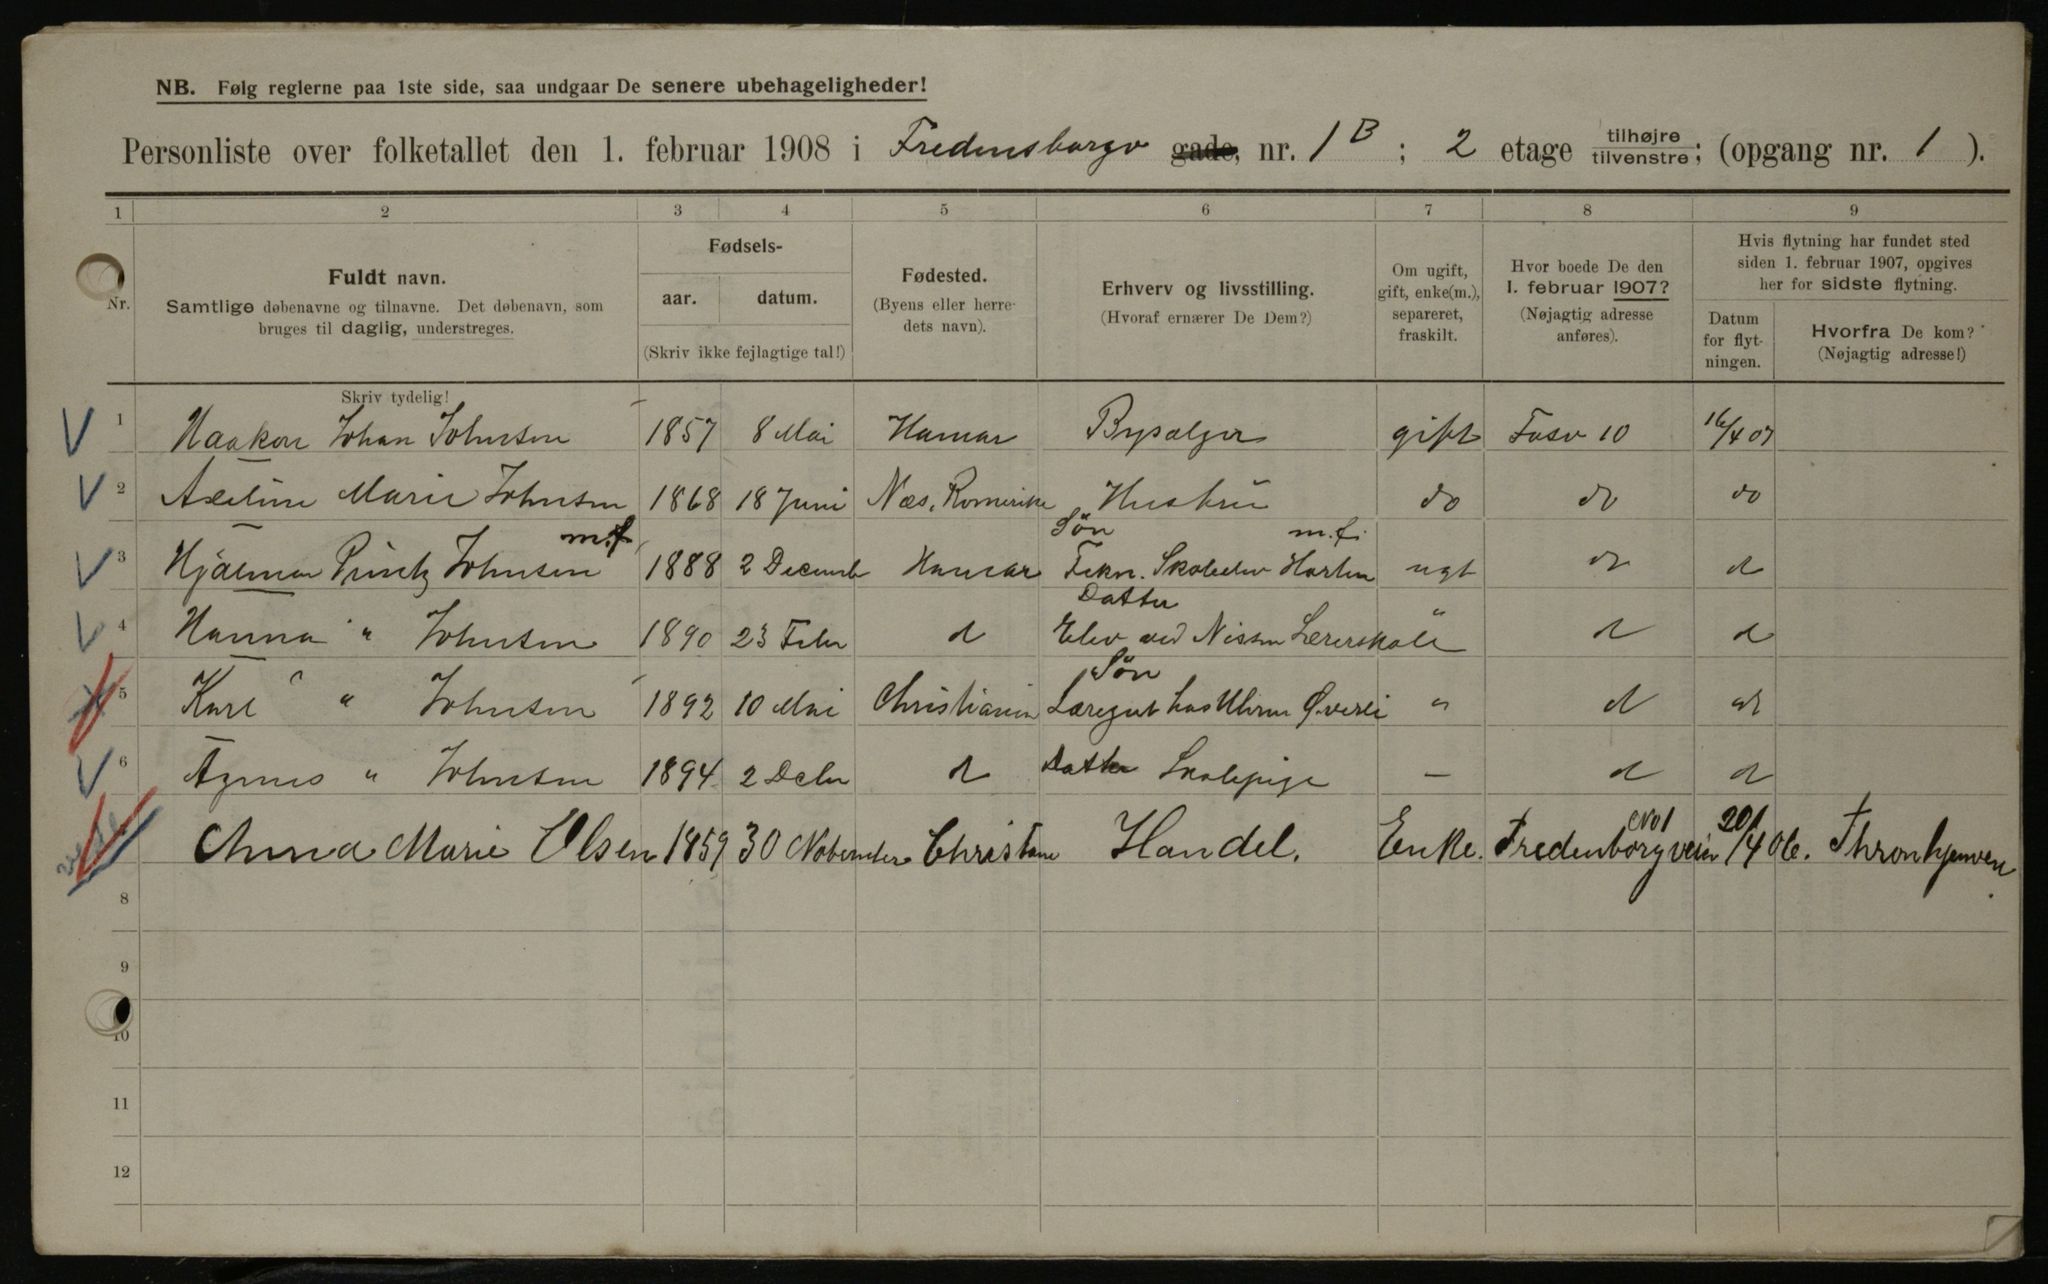 NB. Følg reglerne paa 1ste side, saa undgaar De senere ubehageligheder!
Personliste over folketallet den 1. februar 1908 i Fredensborgv gade, nr. 1 B ; 2 etage tilhøjre tilvenstre; (opgang nr. 1 ).
1 2 3 4 5 6 7 8 9
Nr.
Fuldt navn.
Samtlige døbenavne og tilnavne. Det døbenavn, som
bruges til daglig, understreges.
Fødsels-
aar. datum.
(Skriv ikke fejlagtige tal!)
Fødested.
(Byens eller herre-
dets navn).
Erhverv og livsstilling.
(Hvoraf ernærer De Dem?)
Om ugift,
gift, enke(m.),
separeret,
fraskilt.
Hvor boede De den
1. februar 1907?
(Nøjagtig adresse
anføres).
Hvis flytning har fundet sted
siden 1. februar 1907, opgives
her for sidste flytning.
Datum
for flyt-
ningen.
Hvorfra De kom?
(Nøjagtig adresse!)
Skriv tydelig!
1 Haakon Johan Johnsen 1857 8 Mai Hamar Bysælger gift Fosv 10 16/4 07
2 Axeline Marie Johnsen 1868 18 Juni Næs, Romerike Hustru do do do
m.f. Søn m.f.
3 Hjalmar Printz Johnsen 1888 2 Decemb Hamar Tekn. Skoleelev Horten ugt do d
Datter
4 Hanna " Johnsen 1890 23 Febr d Elev ved Nissen Lærerskole " d d
Søn
5 Karl " Johnsen 1892 10 Mai Christiania Læregut hos Uhrm Øverli " d d
6 Agnes " Johnsen 1894 2 Decbr d Datter Skolepige — d d
No 1 20
Anna Marie Olsen 1859 30 November Christiania Handel. Enke. Fredenborgveien /4 06. Thronhjemvei
8
9
10
11
12